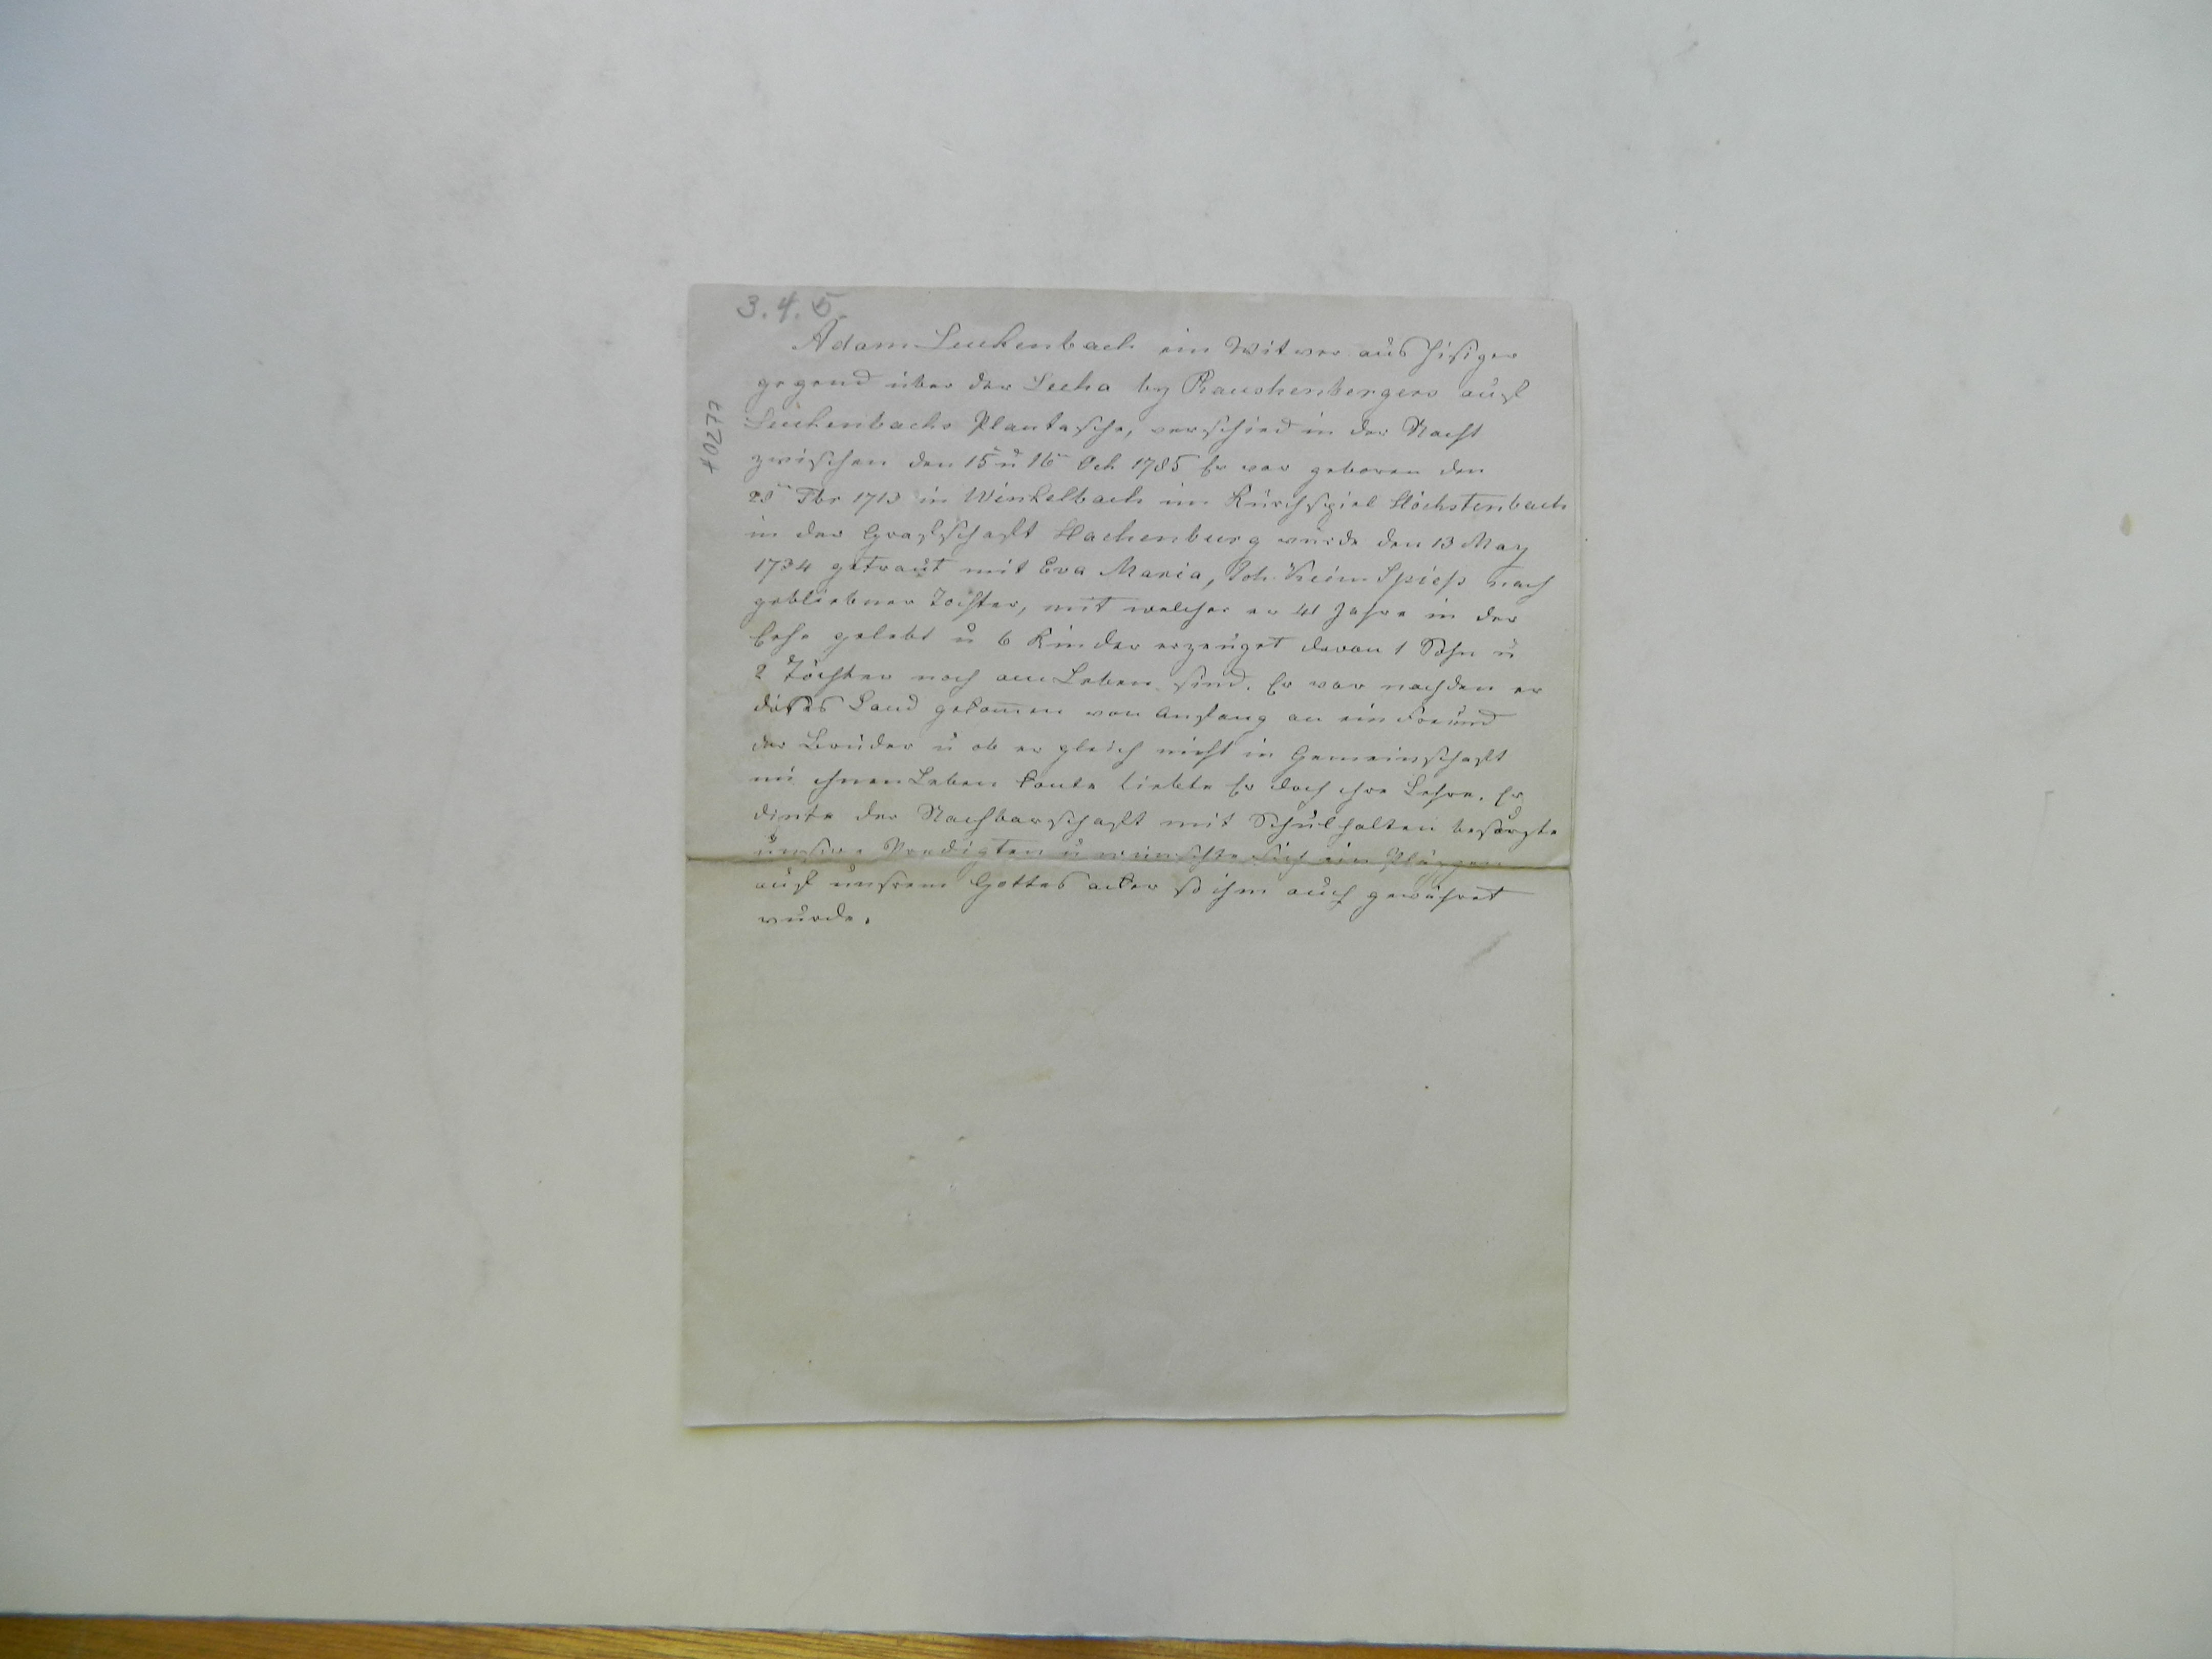 3.4.5.
#0277
Adam Luckenbach ein Witwer aus hisiger
gegend über der Lecha by Rauschenbergers auf
Luckenbachs Plantasche, verschied in der Nacht
zwischen den 15 ū 16 Oct 1785 Er war geboren den
1713 in Winkelbach im Kürchspiel Höchstenbach
in der Grafschaft Hachenburg wurde den 13 May
1734 getraut mit Eva Maria, Joh. Heim Spiess nach
gebliebner Tochter, mit welcher er 41 Jahre in der
Ehe gelebt ū 6 Kinder erzeuget davon 1 Sohn ū
2 Töchter noch am Leben sind. Er war nachden er
dises Land gekom̅en von Anfang an ein Freund
der Brüder ū ob er gleich nicht in Gemeinschaft
mi ihnen Leben konte liebte Er doch ihre Lehre. Er
dinte der Nachbarschaft mit Schulhalten besorgte
unsere Predigten ū wünschte sich ein Pläzgen
auf unsrem Gottes acker so ihm auch gewähret
wurde.